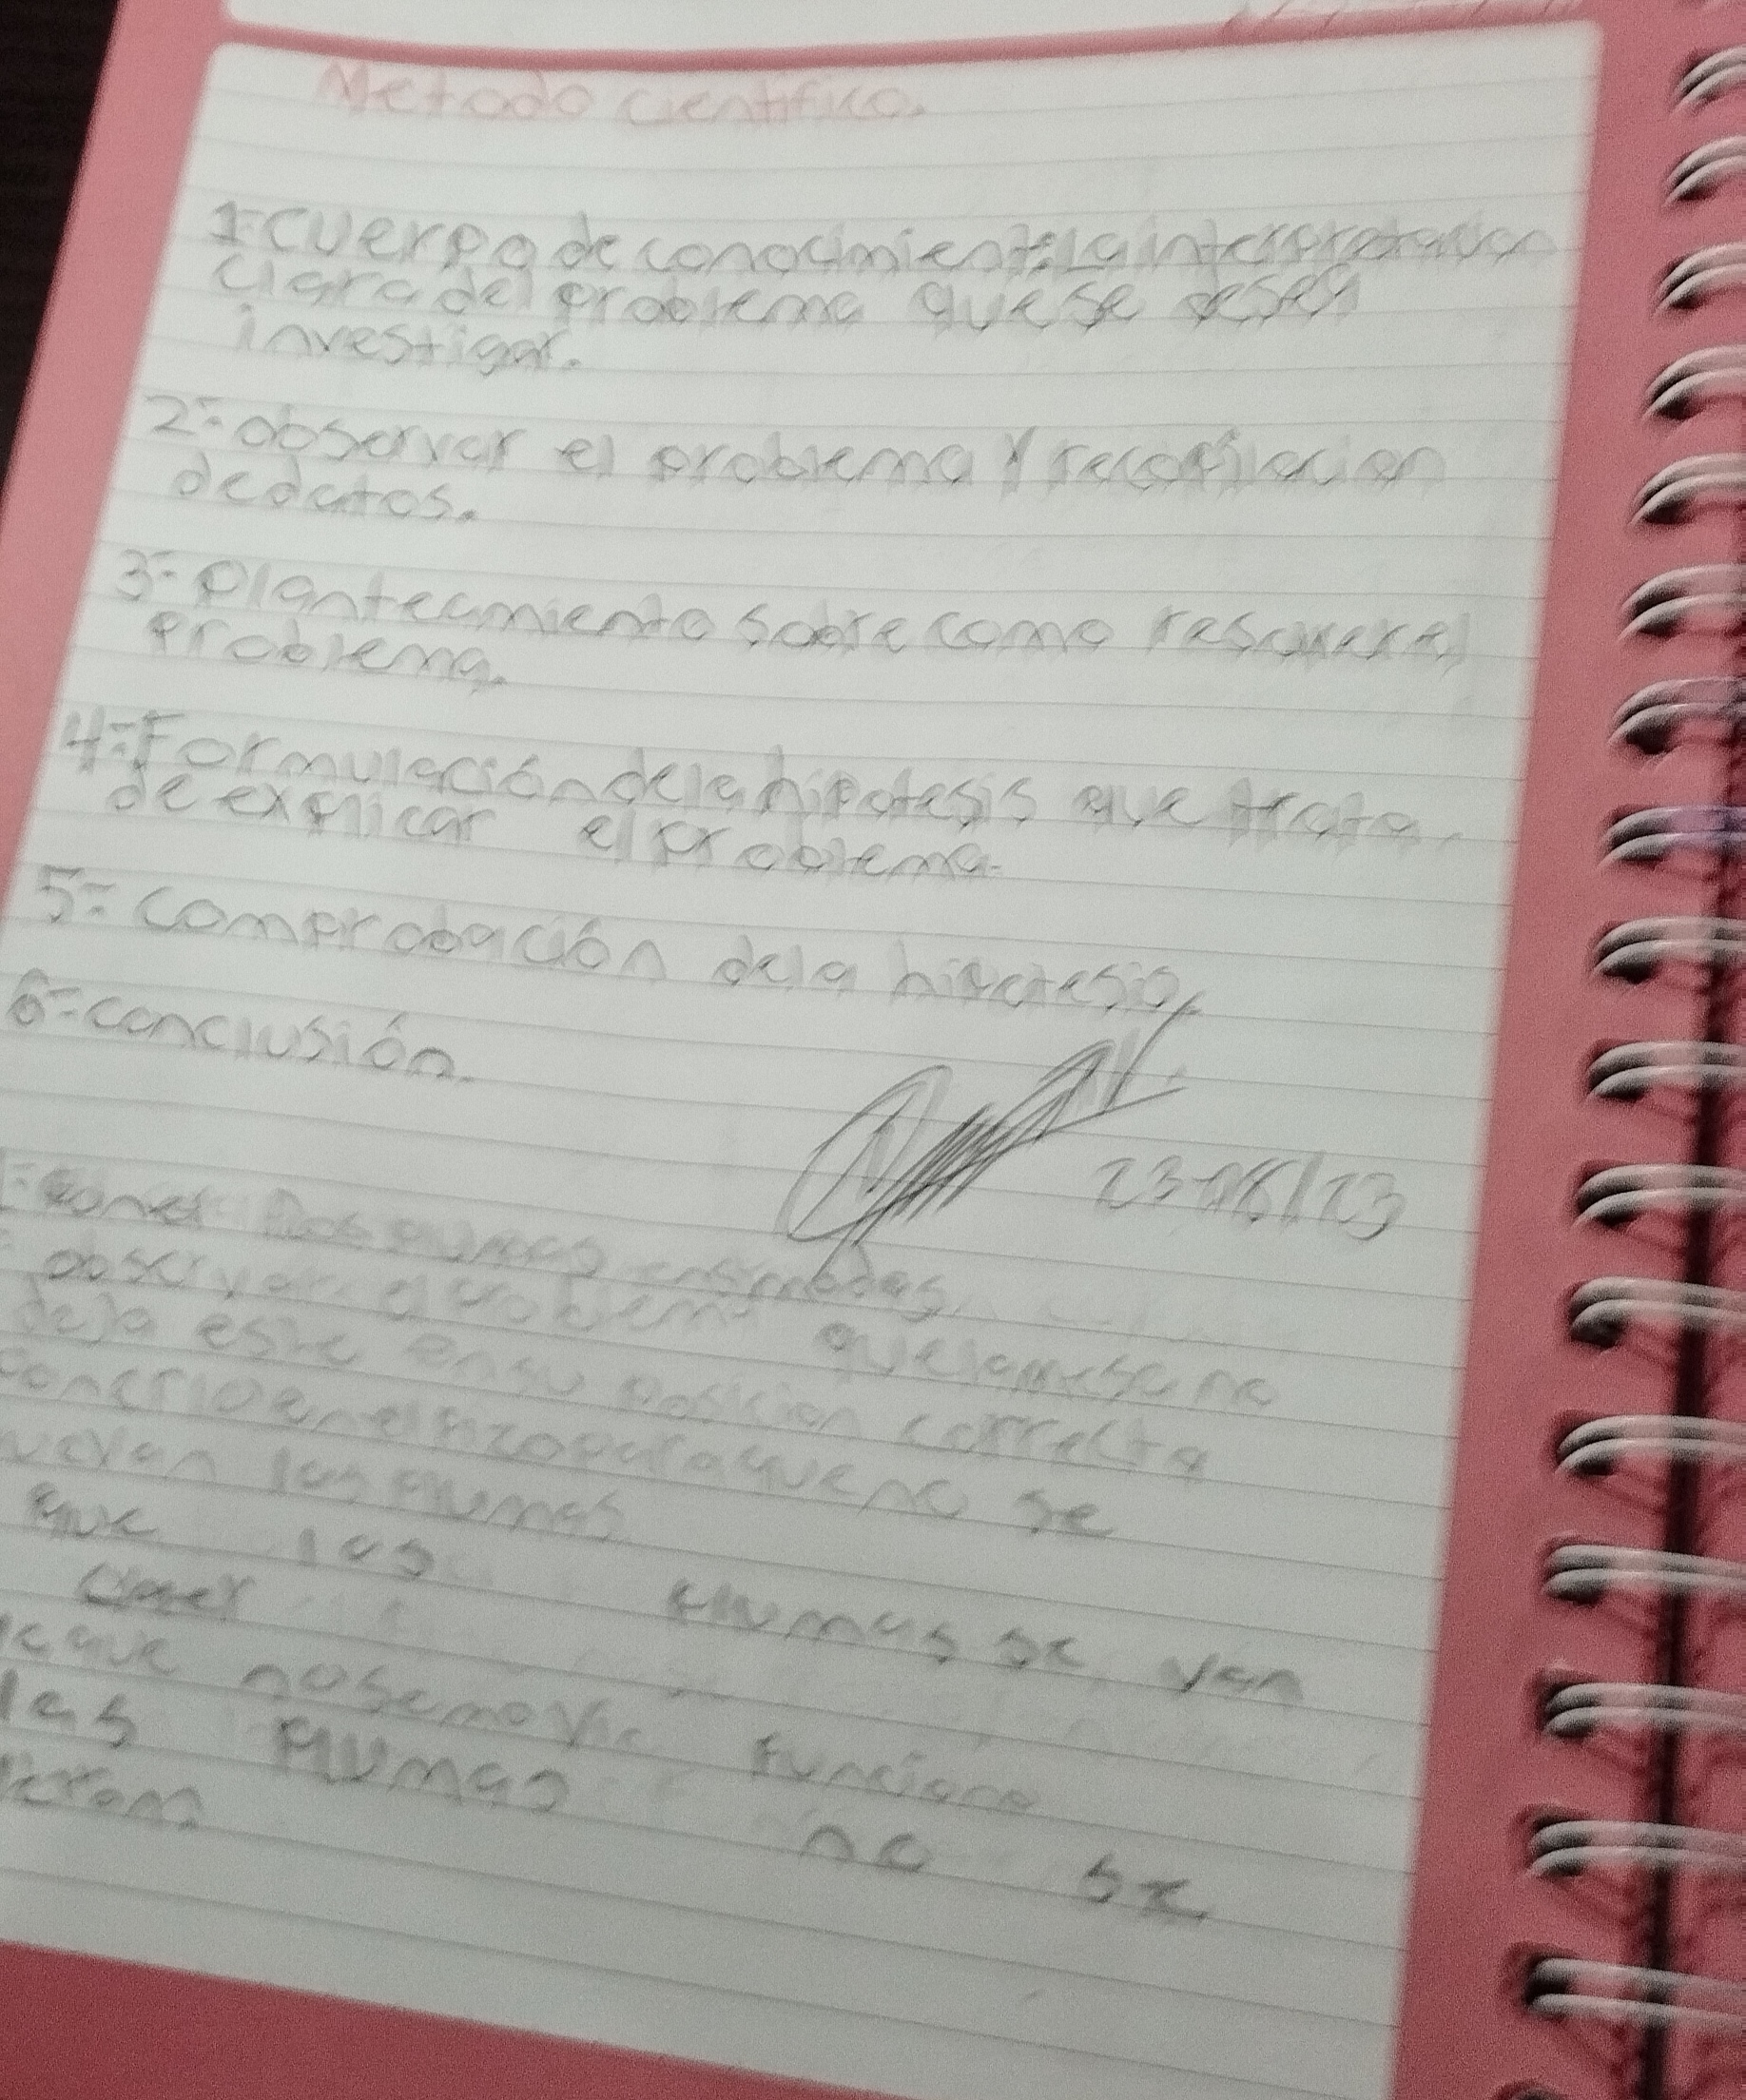 Metodo cientifico.
1-Cuerpo de conocimiento: La interpretacion
clara del problema que se desea
investigar.
2-observar el problema y recopilacion
de datos.
3-Planteamiento sobre como resolver el
problema.
4-Formulación de la hipotesis que trata
de explicar el problema.
5-Comprobación de la hipotesis.
6-conclusión.
23
plumas
observar el problema que la mesa no
deja este en su posicion correcta
para que no se
las plumas
que las plumas se van
a que no se movia funciono
las plumas no se